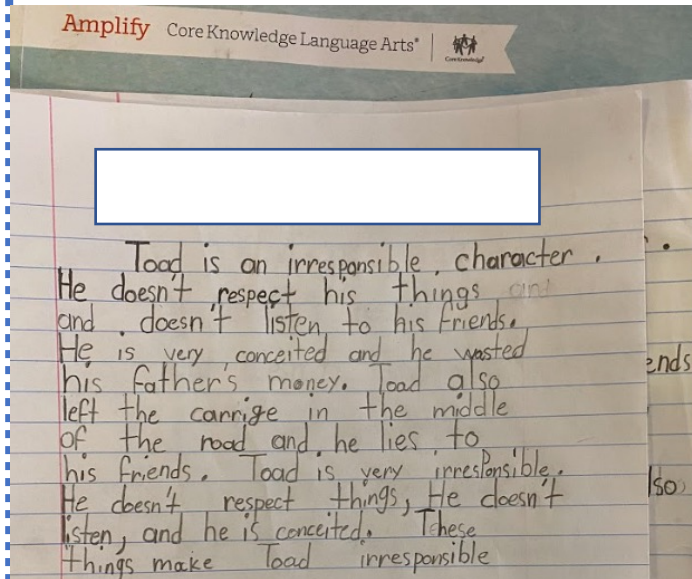 Amplify Core Knowledge Language Arts®
CoreKnowledge®
Toad is an irresponsible, character.
He doesn't respect his things and
and doesn't listen to his friends.
He is very conceited and he wasted
his father's money. Toad also
left the carrige in the middle
of the road and he lies to
his friends. Toad is very irresponsible.
He doesn't respect things, He doesn't
listen, and he is conceited. These
things make Toad irresponsible
ends
lso